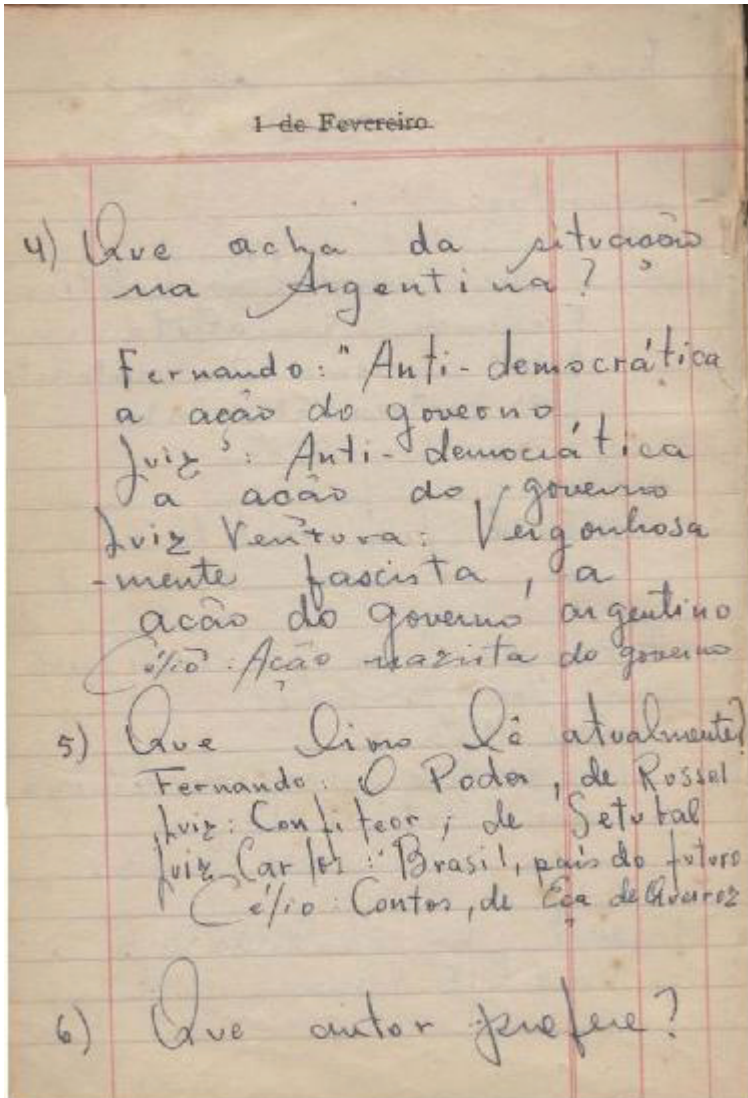 1 de Fevereiro
4) Que acha da situação
na Argentina?
Fernando: "Anti-democrática
a ação do governo
Luiz: Anti-democrática
a ação do governo
Luiz Ventura: Vergonhosa
-mente fascista, a
ação do governo argentino
Célio: Ação nazista do governo
5) Que livro lê atualmente?
Fernando: O Poder, de Russel
Luiz: Confiteor, de Setubal
Luiz Carlos: Brasil, pais do futuro
Célio: Contos, de Eça de Queiroz
6) Que autor prefere?